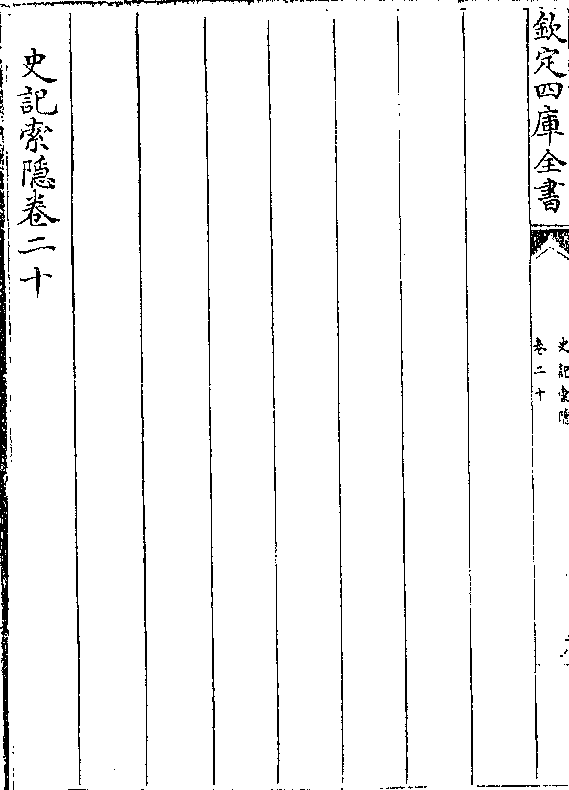 欽定四庫全書
史記索隱
卷二十
史記索隱卷二十